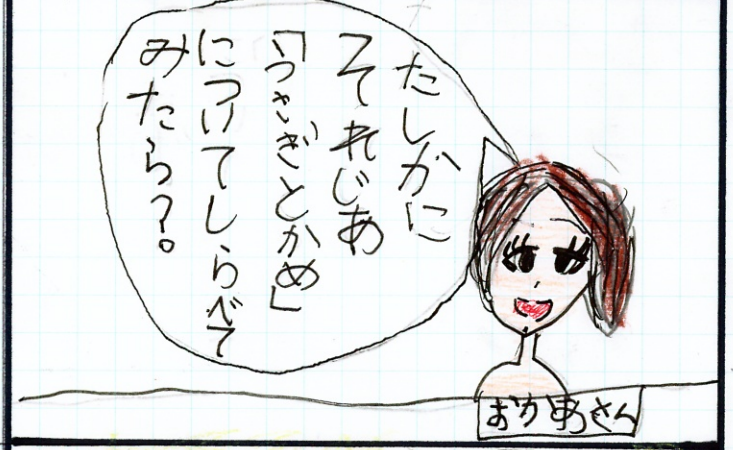 たしかに
それじあ
「うさぎとかめ」
につけてしらべて
みたら?。
おかあさん